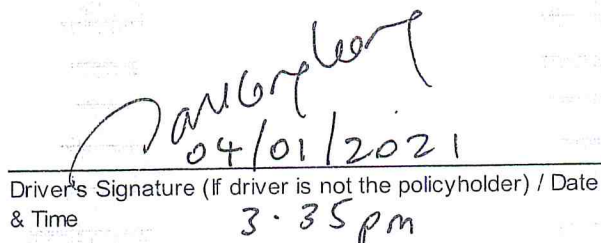 04/01/2021
Driver's Signature (If driver is not the policyholder) / Date
& Time
3.35 pm